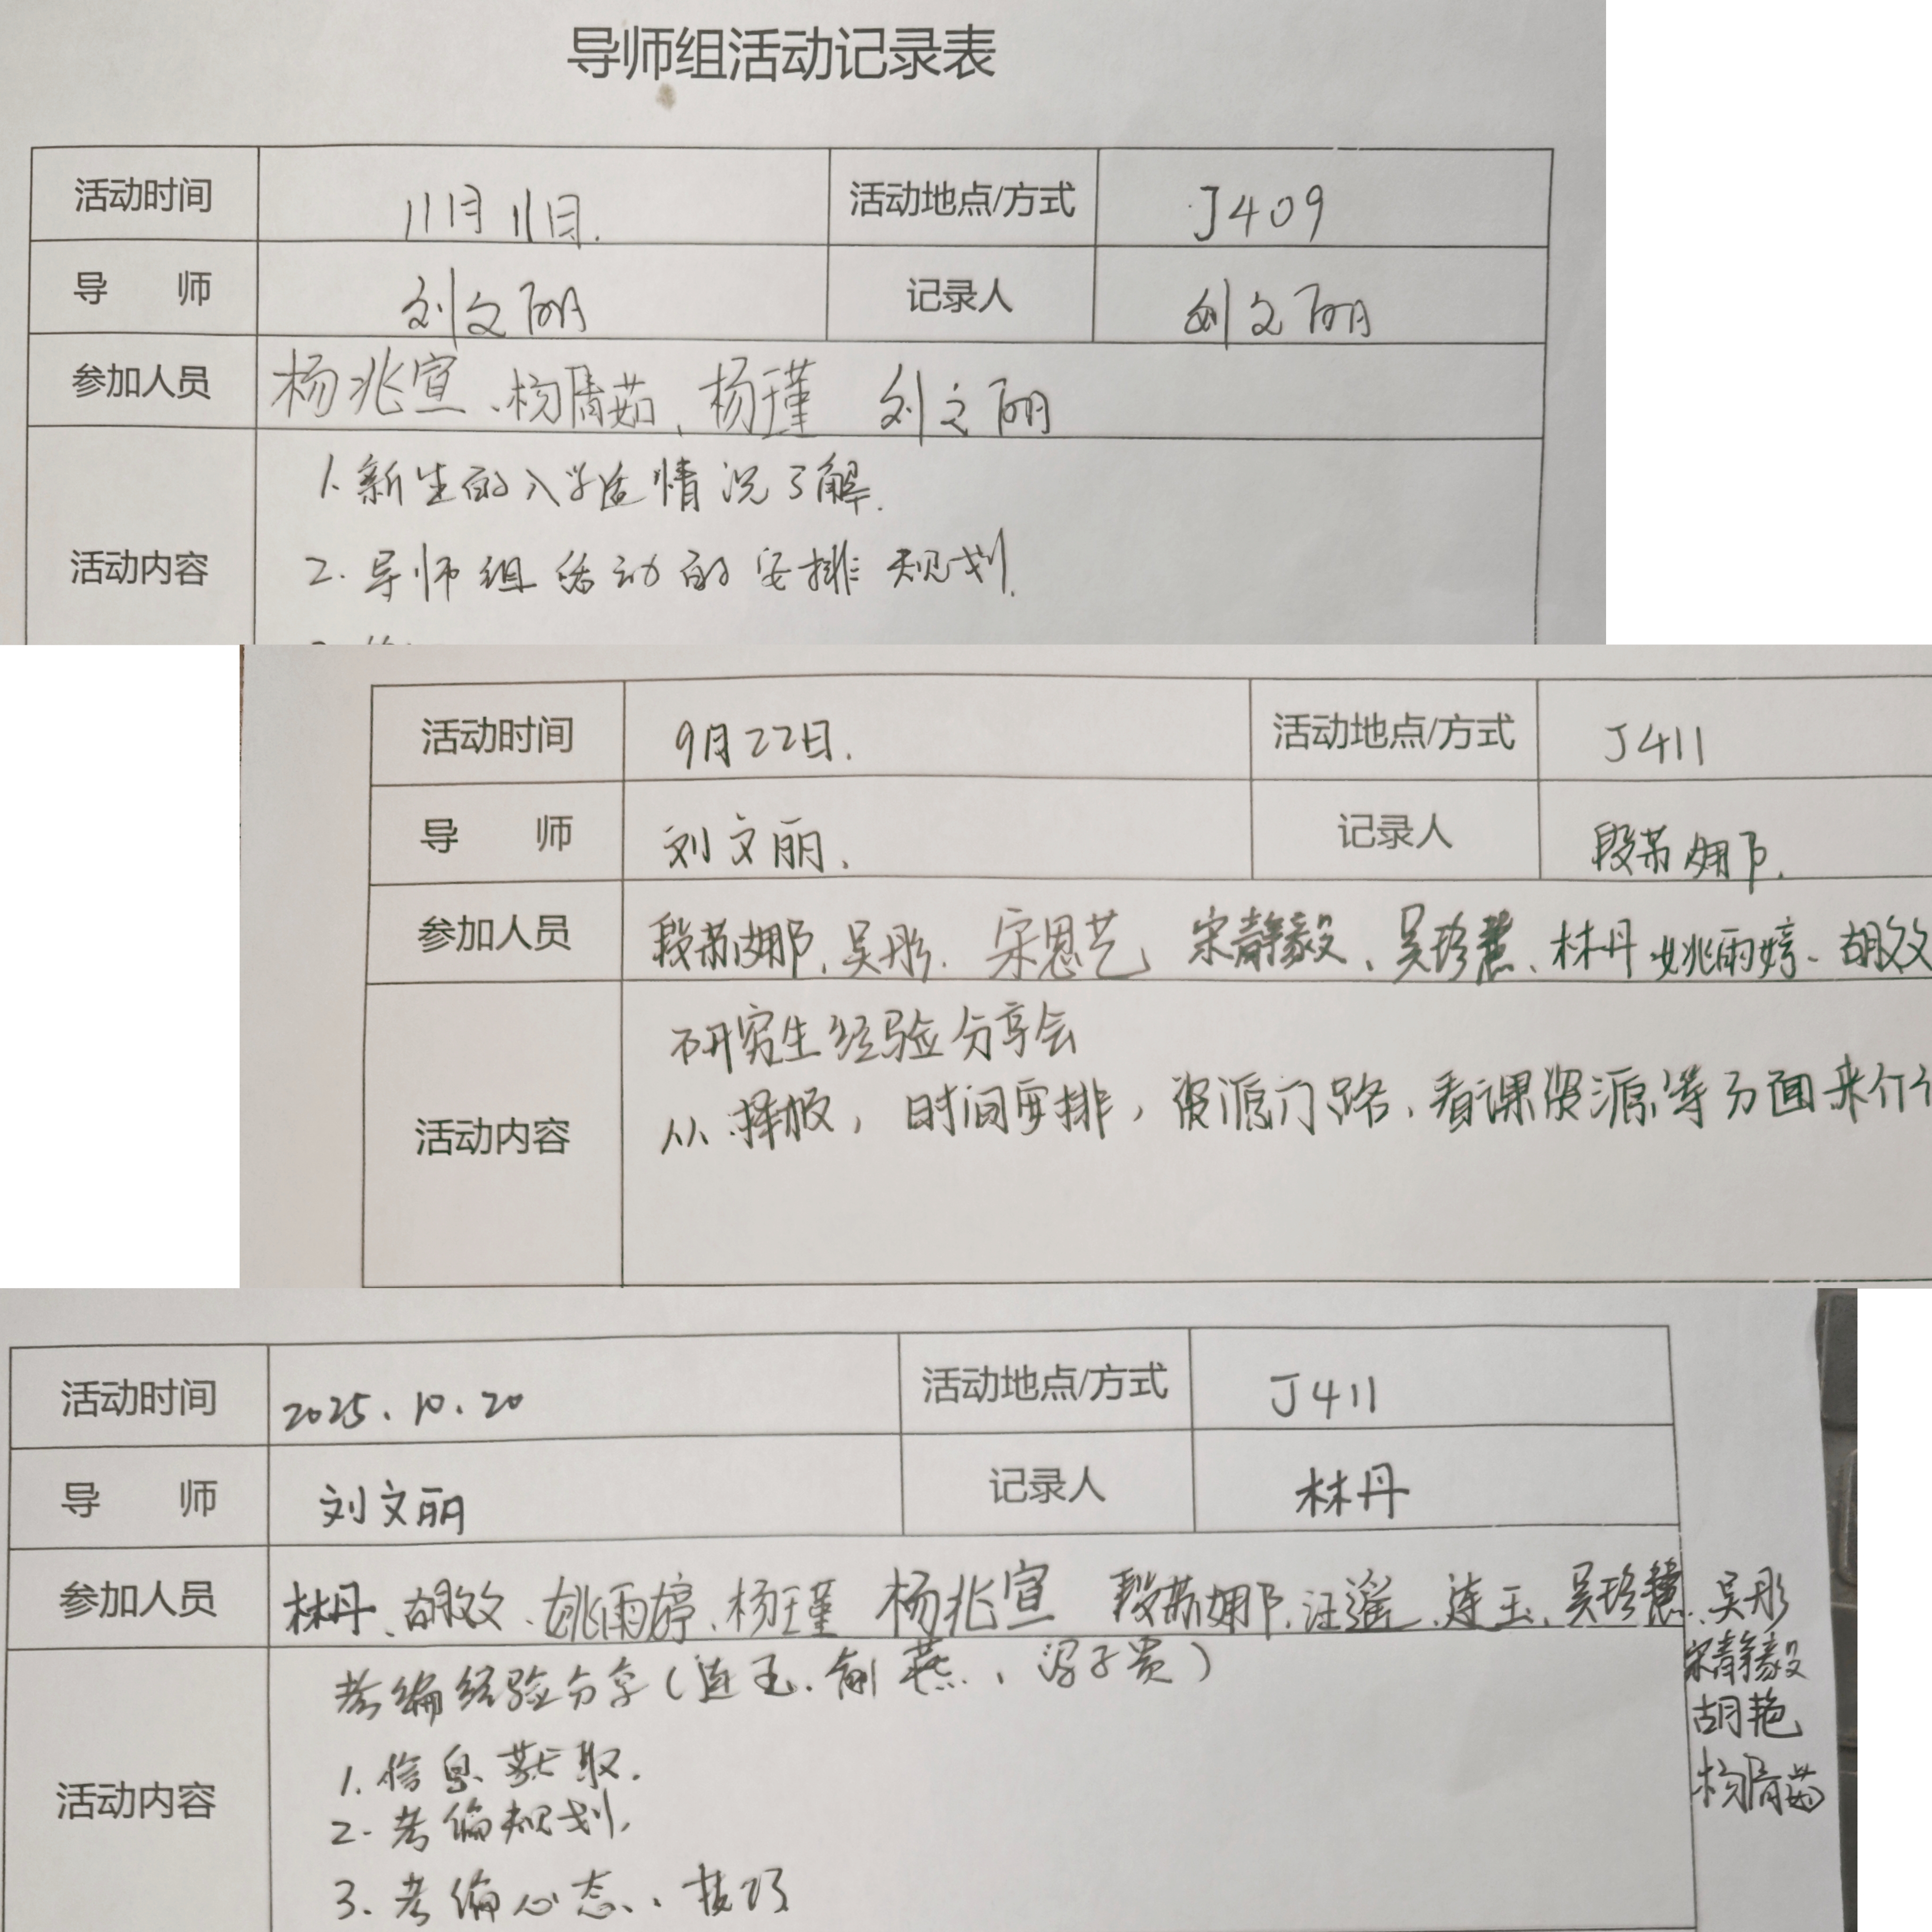 导师组活动记录表
活动时间 11月11日. 活动地点/方式 J409
导 师 刘文丽 记录人 刘文丽
参加人员 杨兆宣、杨清茹、杨瑾 刘文丽
1.新生的入学适情况了解.
活动内容
2.导师组活动的安排规划.
活动时间 9月22日. 活动地点/方式 J411
导 师 刘文丽. 记录人 段苏娜.
参加人员 段苏娜、吴彤. 宋思艺、宋静毅、吴珍慧、林丹 姚雨婷、胡改
研究生经验分享会
从择校,时间安排,资源门路、看课资源等方面来介
活动内容
活动时间 2025.10.20 活动地点/方式 J411
导 师 刘文丽 记录人 林丹
参加人员 林丹、胡改、姚雨婷、杨瑾 杨兆宣 段苏娜、汪遥、连玉、吴珍慧、吴彤
宋静毅
胡艳
杨清茹
考编经验分享(连玉、燕、子贵)
1.信息获取.
活动内容
2.考编规划.
3.考编心态、技巧